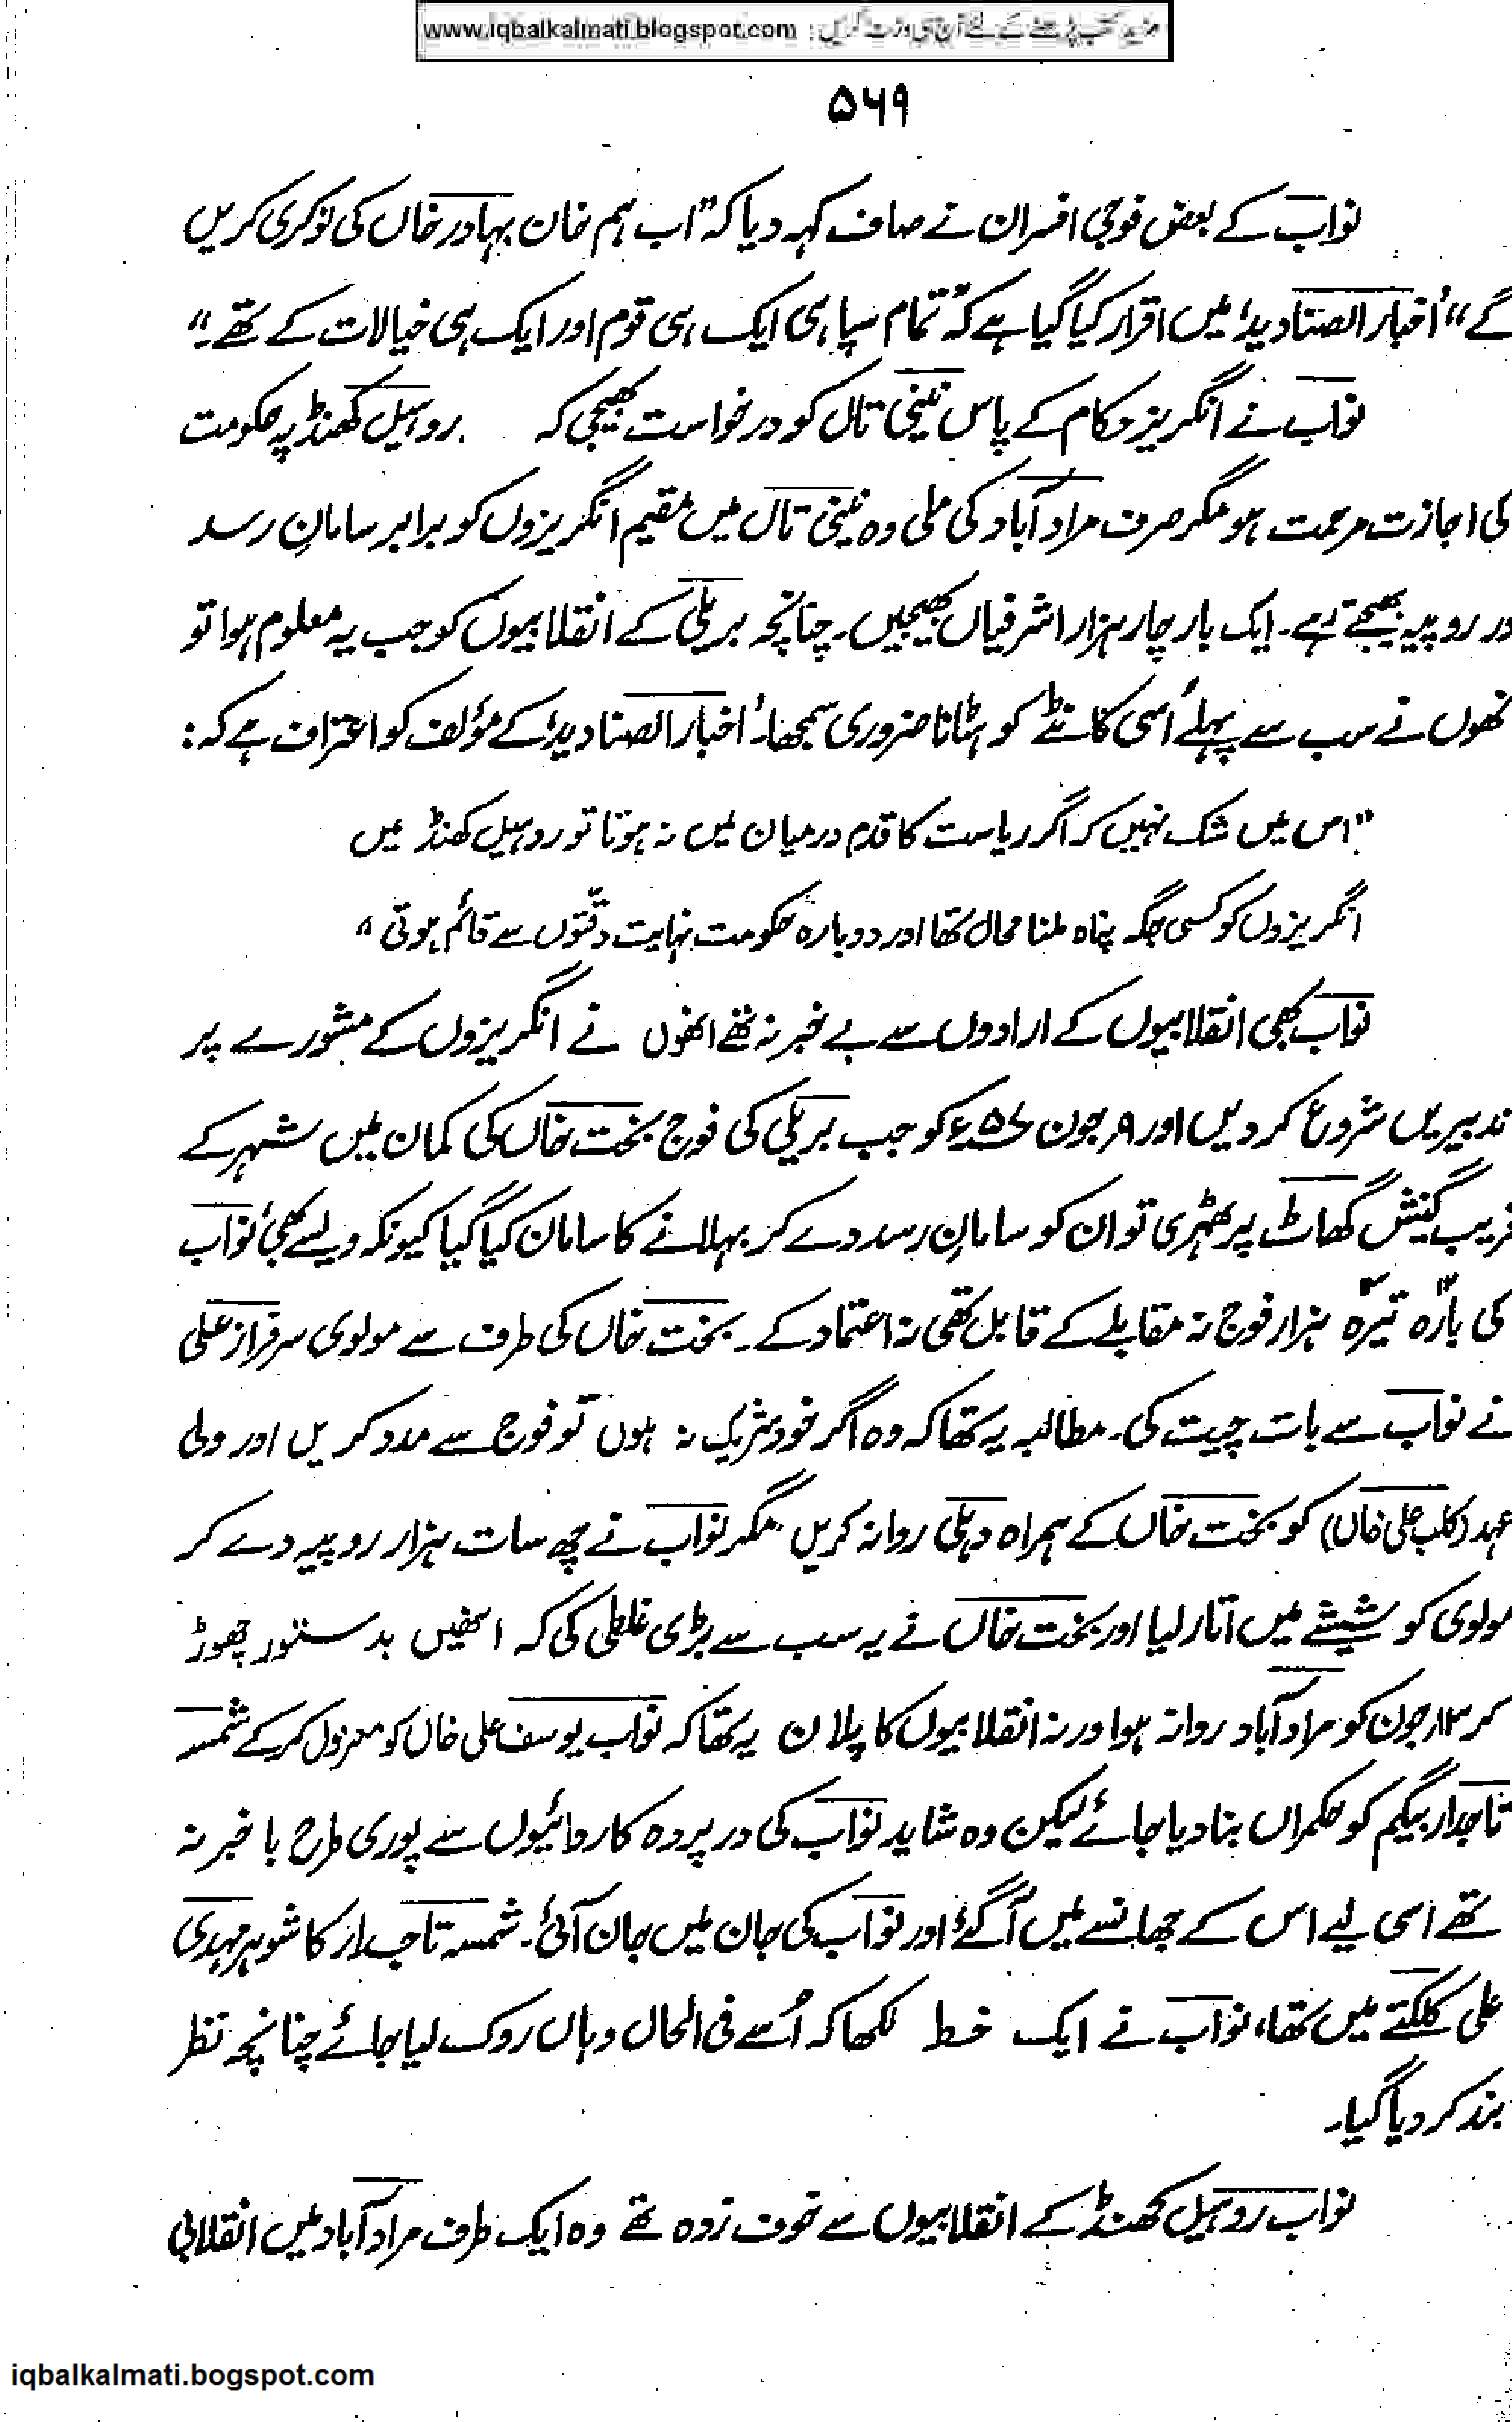 مزید کتب پڑھنے کے لئے آج ہی وزٹ کریں : www.iqbalkalmati.blogspot.com
۵۶۹
نواب کے بعض فوجی افسران نے صاف کہہ دیا کہ ”اب ہم خان بہادر خاں کی نوکری کریں
گے“ ’اخبار الصنادید‘ میں اقرار کیا گیا ہے کہ ”تمام سپاہی ایک ہی قوم اور ایک ہی خیالات کے تھے۔“
نواب نے انگریز حکام کے پاس نینی تال کو درخواست بھیجی کہ روہیل کھنڈ پر حکومت
کی اجازت مرحمت ہو مگر صرف مراد آباد کی ملی وہ نینی تال میں مقیم انگریزوں کو برابر سامانِ رسد
ور روپیہ بھیجتے رہے۔ ایک بار چار ہزار اشرفیاں بھیجیں۔ چنانچہ بریلی کے انقلابیوں کو جب یہ معلوم ہوا تو
نھوں نے سب سے پہلے اُسی کانٹے کو ہٹانا ضروری سمجھا۔ ’اخبار الصنادید‘ کے مؤلف کو اعتراف ہے کہ:
”اس میں شک نہیں کہ اگر ریاست کا قدم درمیان میں نہ ہوتا تو روہیل کھنڈ میں
انگریزوں کو کسی جگہ پناہ ملنا محال تھا اور دوبارہ حکومت نہایت دقّتوں سے قائم ہوتی“
نواب بھی انقلابیوں کے ارادوں سے بے خبر نہ تھے انھوں نے انگریزوں کے مشورے پر
تدبیریں شروع کر دیں اور ۹ر جون ۵۷ء کو جب بریلی کی فوج بخت خاں کی کمان میں شہر کے
قریب گنیش گھاٹ پر ٹھہری تو ان کو سامانِ رسد دے کر بہلانے کا سامان کیا گیا کیونکہ ویسے بھی نواب
کی بارہ تیرہ ہزار فوج نہ مقابلے کے قابل تھی نہ اعتماد کے۔ بخت خاں کی طرف سے مولوی سرفراز علی
نے نواب سے بات چیت کی۔ مطالبہ یہ تھا کہ وہ اگر خود شریک نہ ہوں تو فوج سے مدد کریں اور ولی
عہد (کلب علی خاں) کو بخت خاں کے ہمراہ دہلی روانہ کریں، مگر نواب نے چھ سات ہزار روپیہ دے کر
مولوی کو شیشے میں اتار لیا اور بخت خاں نے یہ سب سے بڑی غلطی کی کہ انھیں بدستور چھوڑ
کر ۱۳ر جون کو مراد آباد روانہ ہوا ورنہ انقلابیوں کا پلان یہ تھا کہ نواب یوسف علی خاں کو معزول کر کے شمسہ
تاجدار بیگم کو حکمراں بنا دیا جائے لیکن وہ شاید نواب کی درپردہ کاروائیوں سے پوری طرح با خبر نہ
تھے اسی لیے اس کے جھانسے میں آگئے اور نواب کی جان میں جان آئی۔ شمسہ تاجدار کا شوہر مہدی
علی کلکتے میں تھا، نواب نے ایک خط لکھا کہ اُسے فی الحال وہاں روک لیا جائے چنانچہ نظر
بند کر دیا گیا۔
نواب روہیل کھنڈ کے انقلابیوں سے خوف زدہ تھے وہ ایک طرف مراد آباد میں انقلابی
iqbalkalmati.bogspot.com